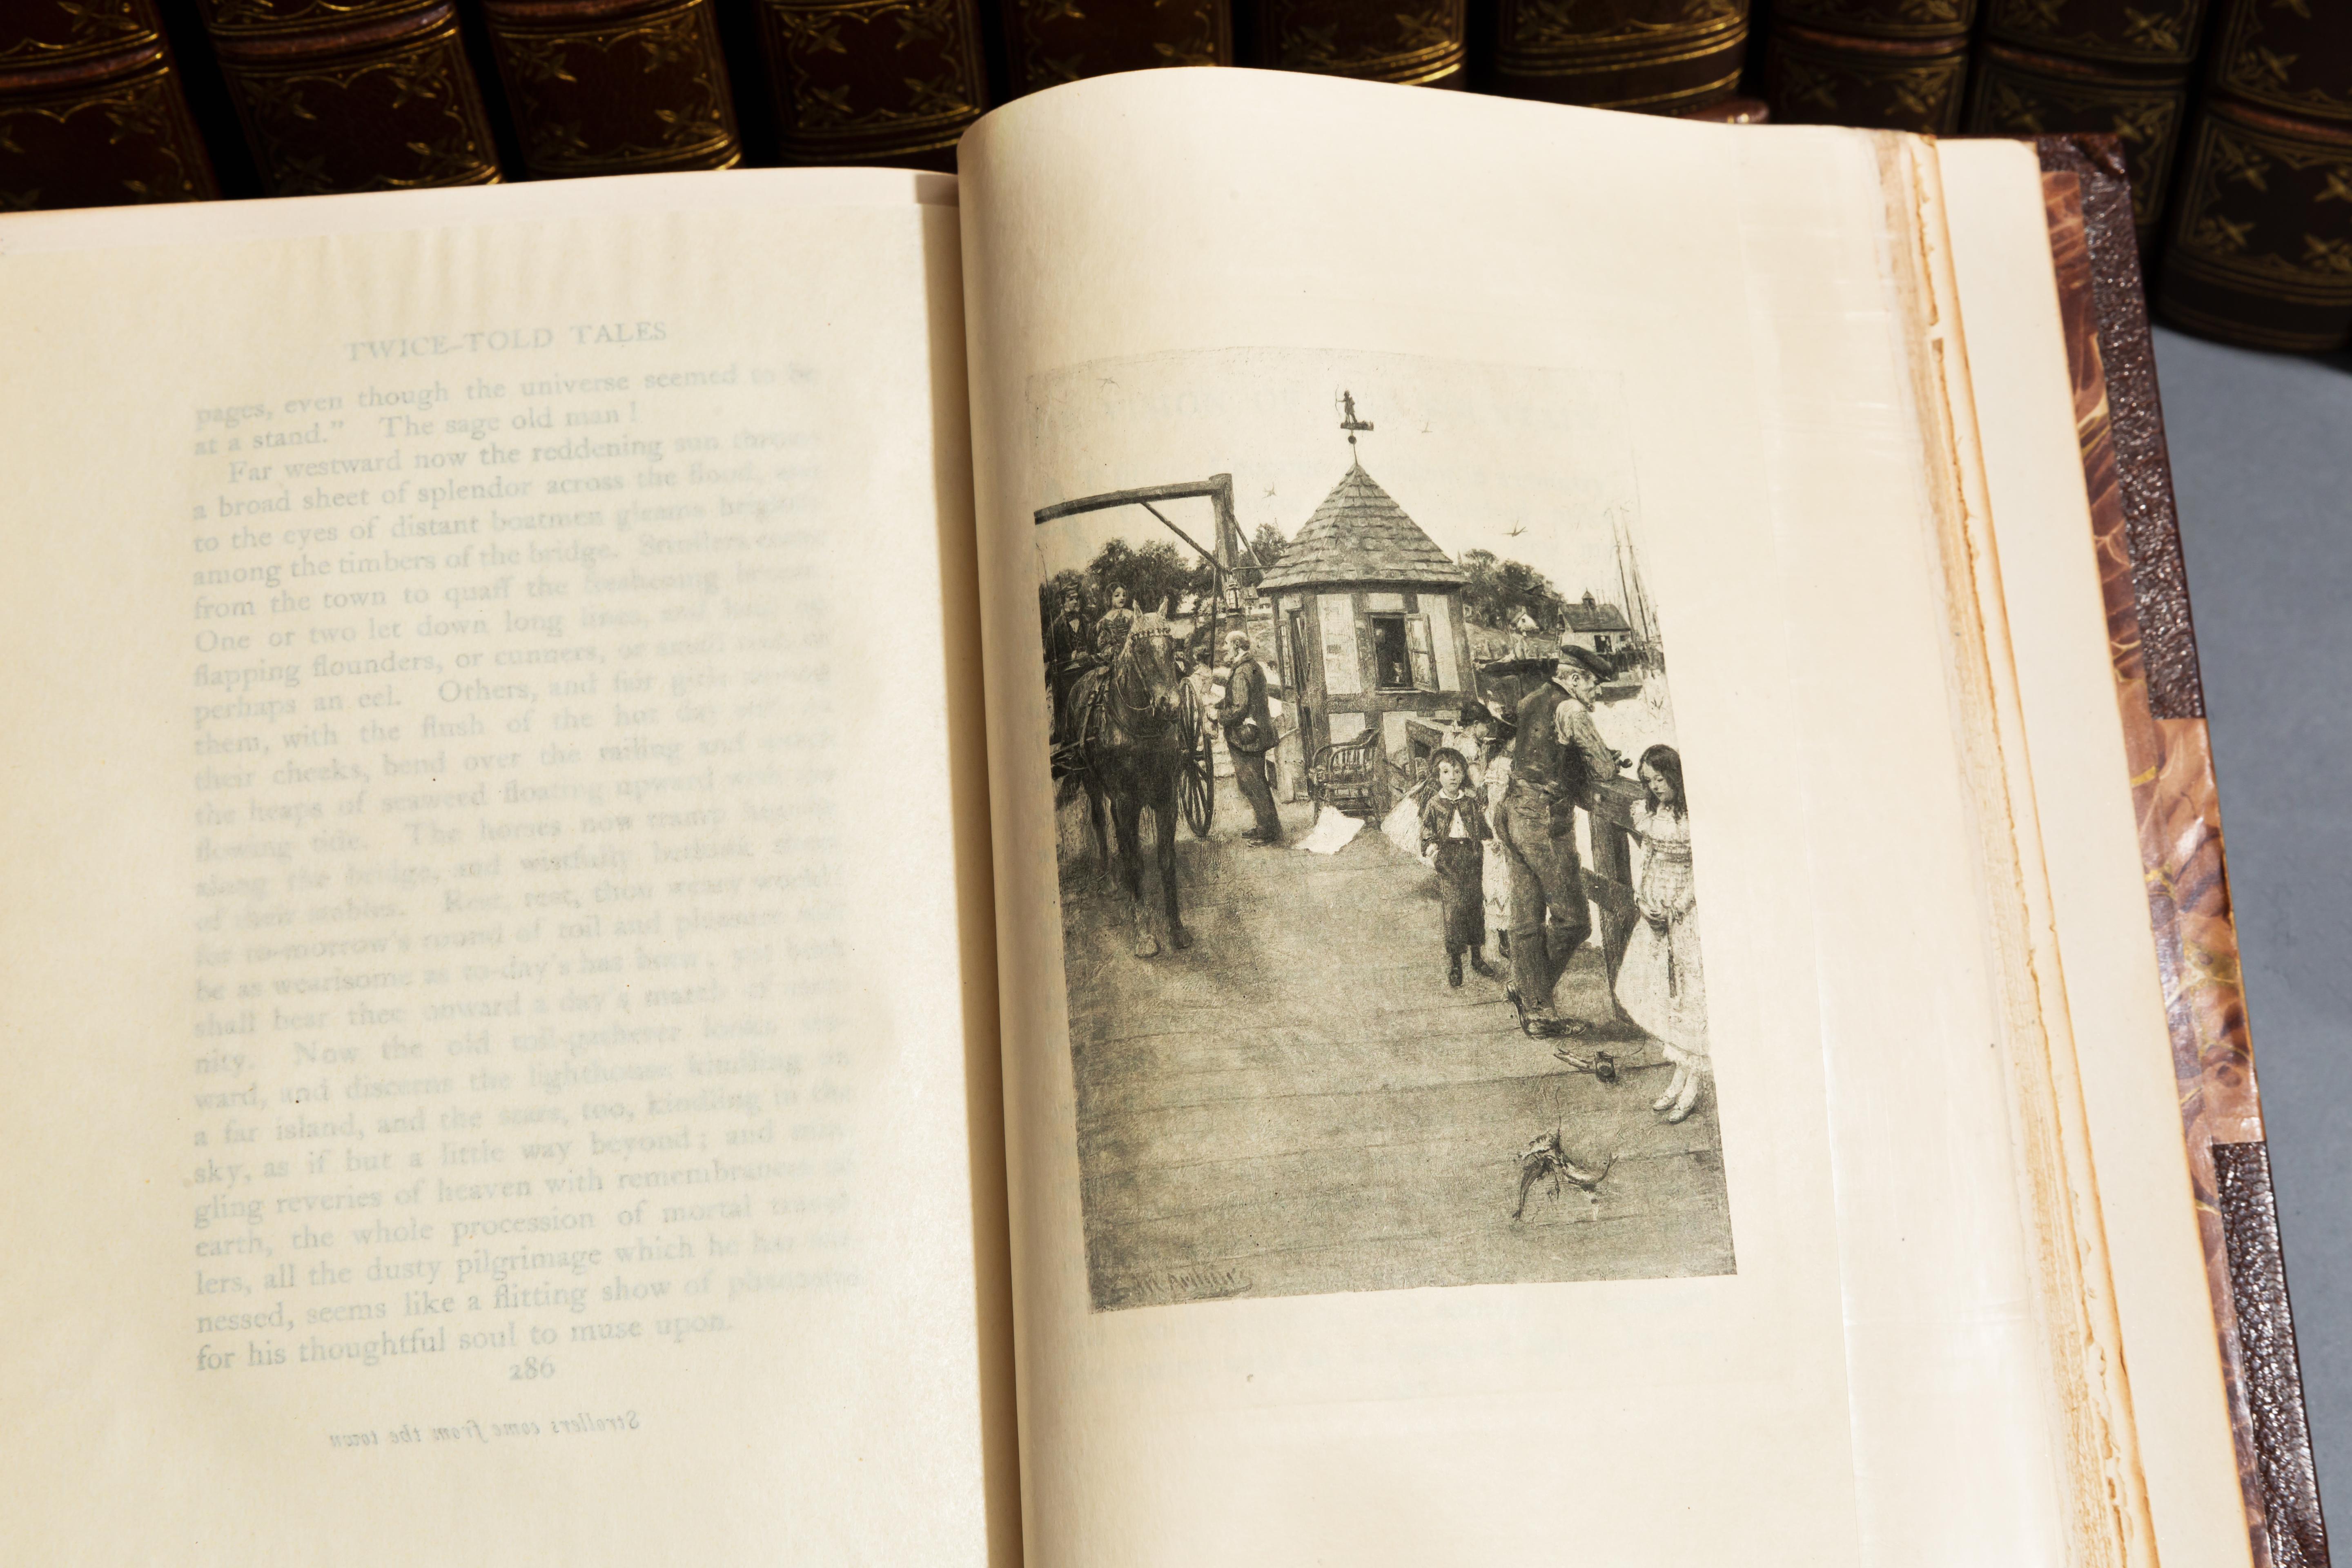 TWICE-TOLD TALES
pages, even though the universe seemed to be
at a stand.” The sage old man !
Far westward now the reddening sun throws
a broad sheet of splendor across the flood, and
to the eyes of distant boatmen gleams brightly
among the timbers of the bridge. Strollers come
from the town to quaff the freshening breeze.
One or two let down long lines, and haul up
flapping flounders, or cunners, or small cod, or
perhaps an eel. Others, and fair girls among
them, with the flush of the hot day still on
their cheeks, bend over the railing and watch
the heaps of seaweed floating upward with the
flowing tide. The horses now tramp heavily
along the bridge, and wistfully bethink them
of their stables. Rest, rest, thou weary world!
for to-morrow's round of toil and pleasure will
be as wearisome as to-day's has been; yet both
shall bear thee onward a day's march of eter-
nity. Now the old toll-gatherer looks sea-
ward, and discerns the lighthouse kindling on
a far island, and the stars, too, kindling in the
sky, as if but a little way beyond; and min-
gling reveries of heaven with remembrances of
earth, the whole procession of mortal travel-
lers, all the dusty pilgrimage which he has wit-
nessed, seems like a flitting show of phantoms
for his thoughtful soul to muse upon.
286
Strollers come from the town